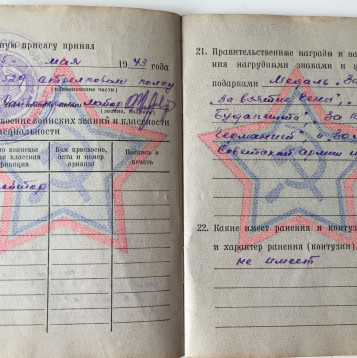 ную присягу принял
5 " мая 1943 года
529 стрелковом полку
(наименование части)
майор
воинских званий и классности
специальности
но воинское
или классная
фикация
Кем присвоено,
дата и номер
приказа
Подпись и
печать
21. Правительственные награды и на
ния нагрудными знаками и ц
подарками Медаль „За
„За взятие Вены",
Будапешта" За п
Германией" „За
Советской армии и
22. Какие имеет ранения и контуз
и характер ранения (контузии),
не имеет